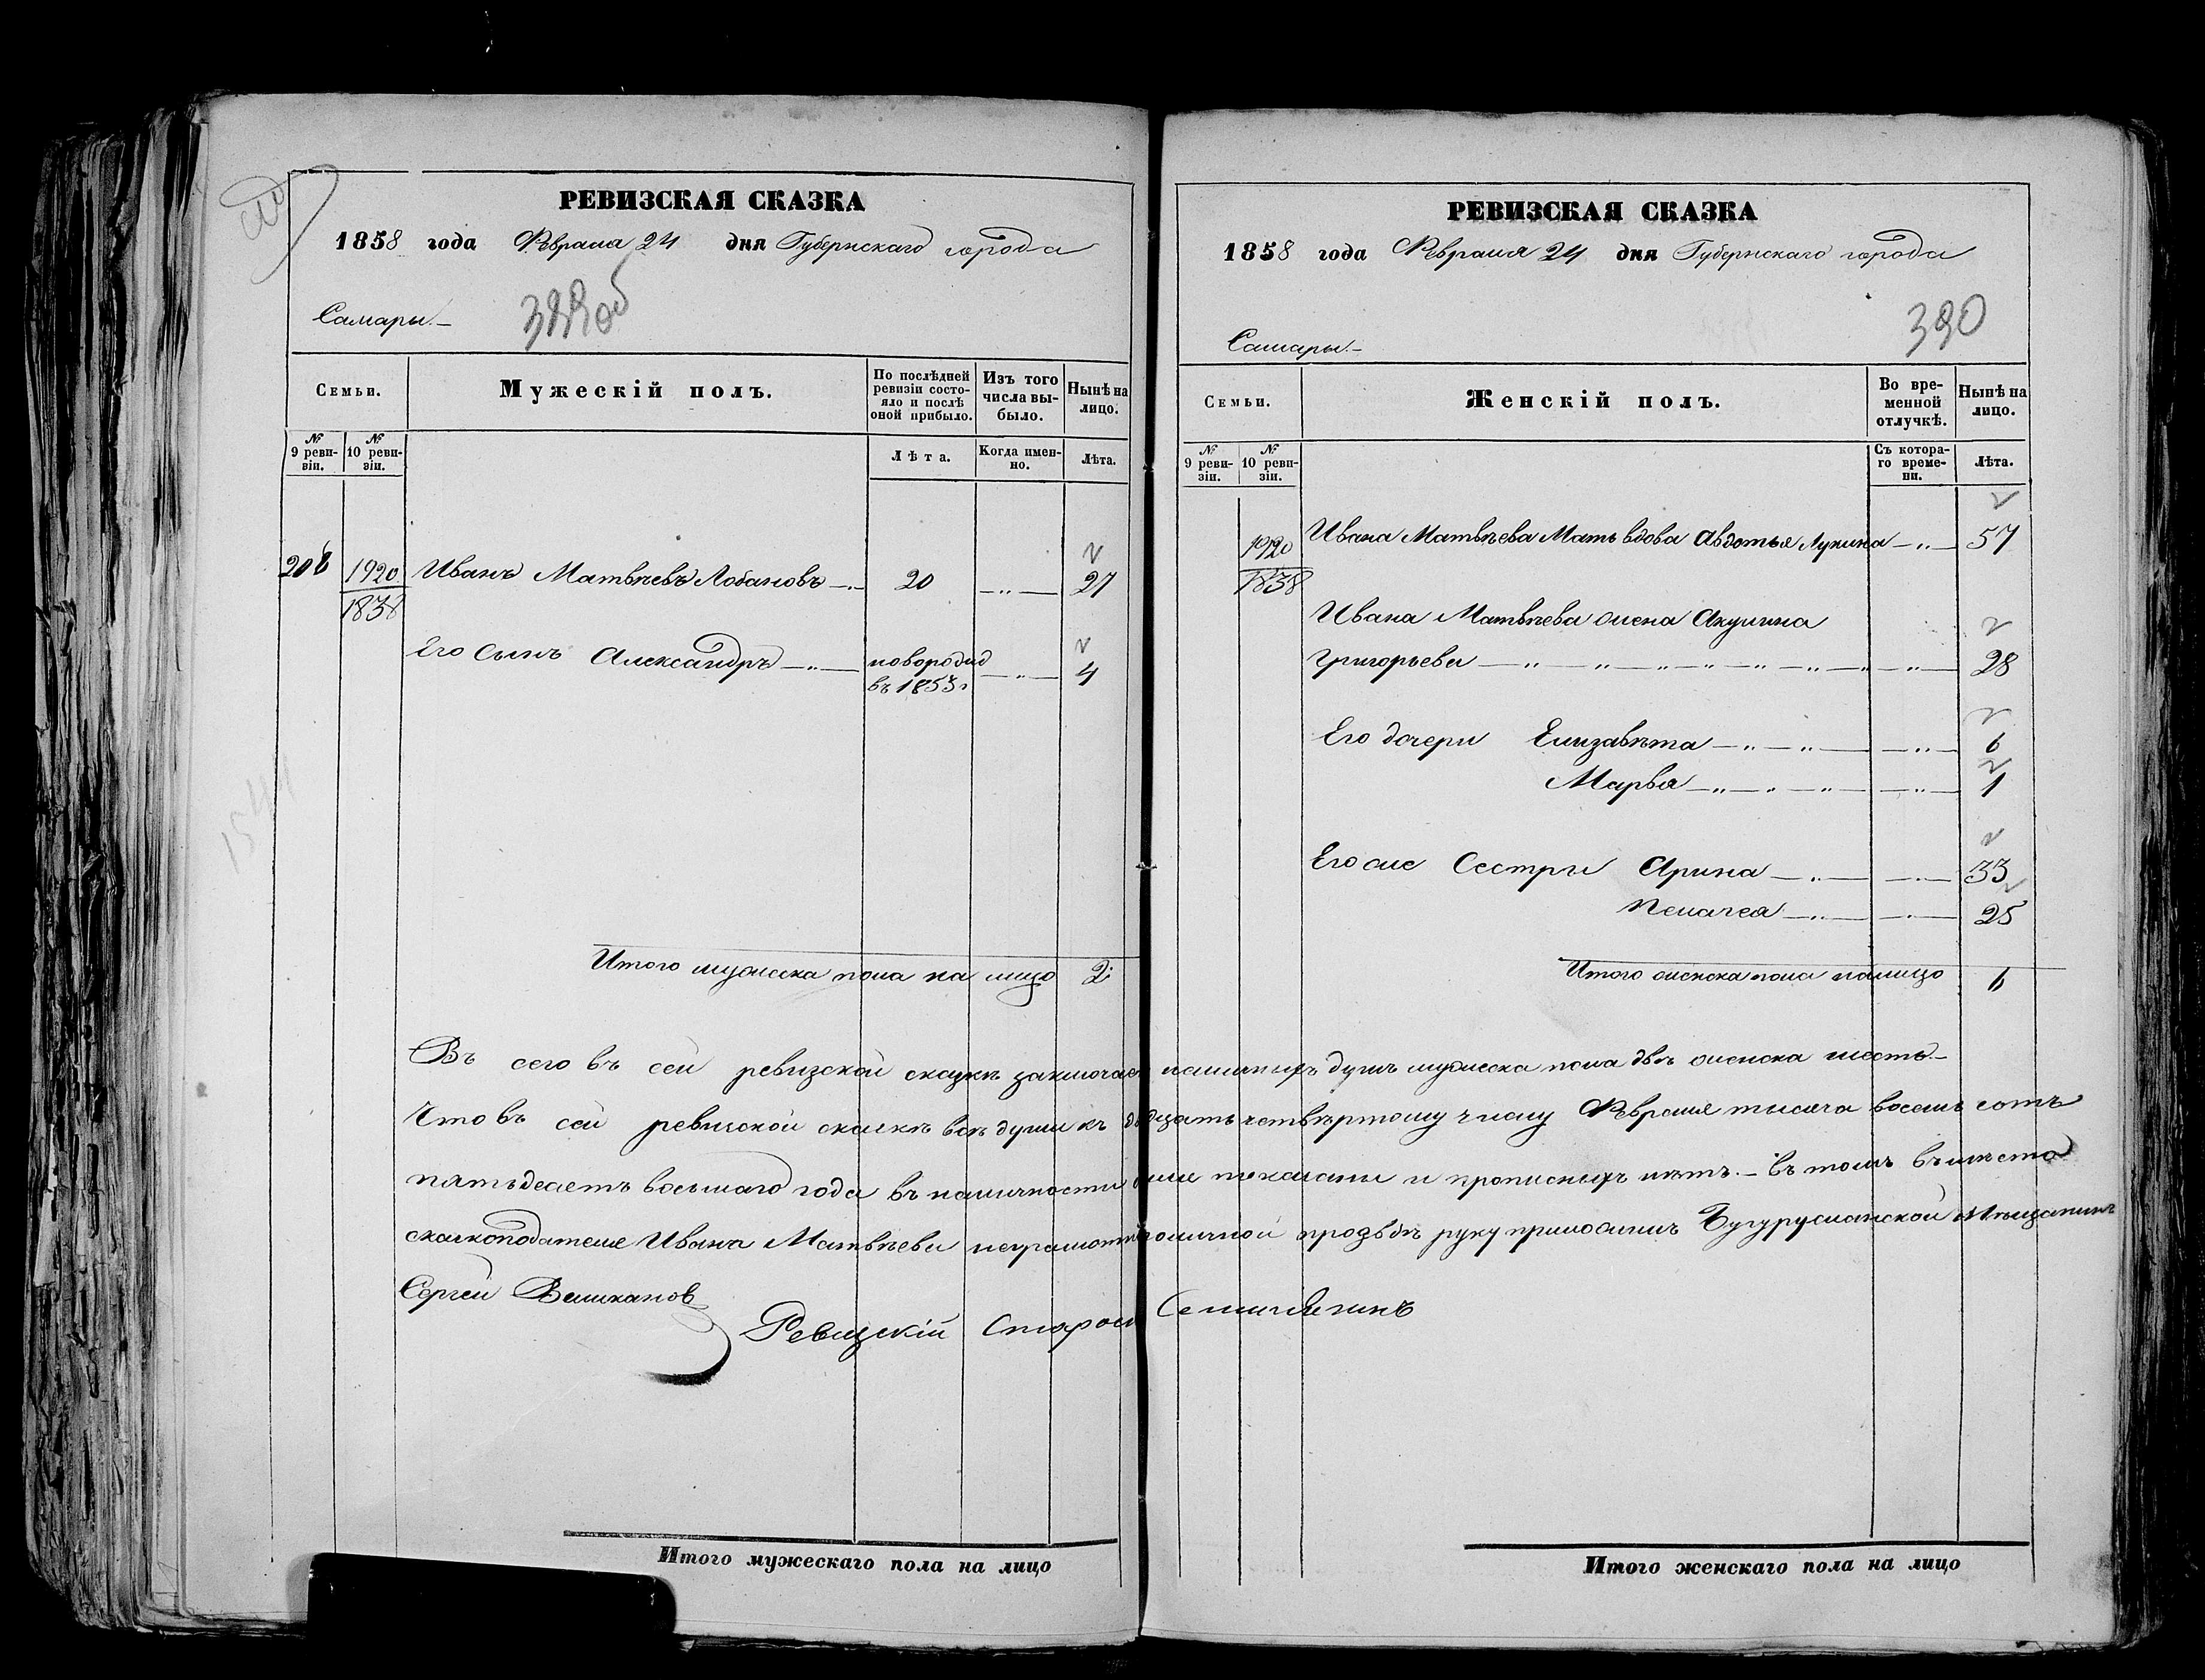 РЕВИЗСКАЯ СКАЗКА
1858 года Февраля 24 дня Губернскаго города
Самары.
Семьи.
Мужескій полъ.
По послѣдней ревизіи состояло и послѣ оной прибыло.
Изъ того числа выбыло.
Нынѣ на лицо.
№ 9 ревизіи.
№ 10 ревизіи.
Лѣта.
Когда именно.
Лѣта.
208 1920 Иванъ Матвѣевъ Лобановъ 20 27
1838
Его Сынъ Александръ новорожд 4
въ 1853 г
Итого мужеска пола на лицо 2
РЕВИЗСКАЯ СКАЗКА
1858 года Февраля 24 дня Губернскаго города
390
Самары.
Семьи.
Женскій полъ.
Во временной отлучкѣ.
Нынѣ на лицо.
№ 9 ревизіи.
№ 10 ревизіи.
Съ котораго времени.
Лѣта.
1920 Ивана Матвѣева Мать вдова Авдотья Лукина 57
1838
Ивана Матвѣева жена Акулина
Григорьева 28
Его дочери Елизавѣта 6
Марья 1
Его же Сестры Арина 33
Пелагея 25
Итого женска пола на лицо 6
въ сей ревизской сказкѣ наличныхъ душъ мужеска пола двѣ женска шесть.
Что въ сей ревизской сказкѣ всѣ души къ двадцать четвѣртому числу Февраля тысяча восемь сотъ
пятьдесятъ восьмаго года въ наличности показаны и прописныхъ нѣтъ. въ томъ вмѣсто
сказкоподателя Ивана Матвѣева по личной прозьбѣ руку приложилъ Бугурусланской Мѣщанинъ
Сергей Великанов
Ревизскій
Итого мужескаго пола на лицо
Итого женскаго пола на лицо